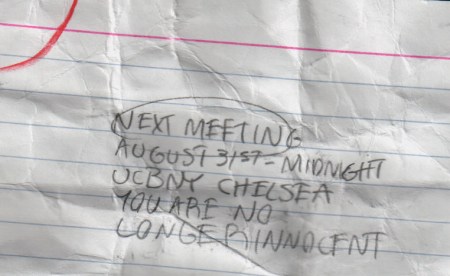 NEXT MEETING
AUGUST 31ST - MIDNIGHT
UCBNY CHELSEA
YOU ARE NO
LONGER INNOCENT